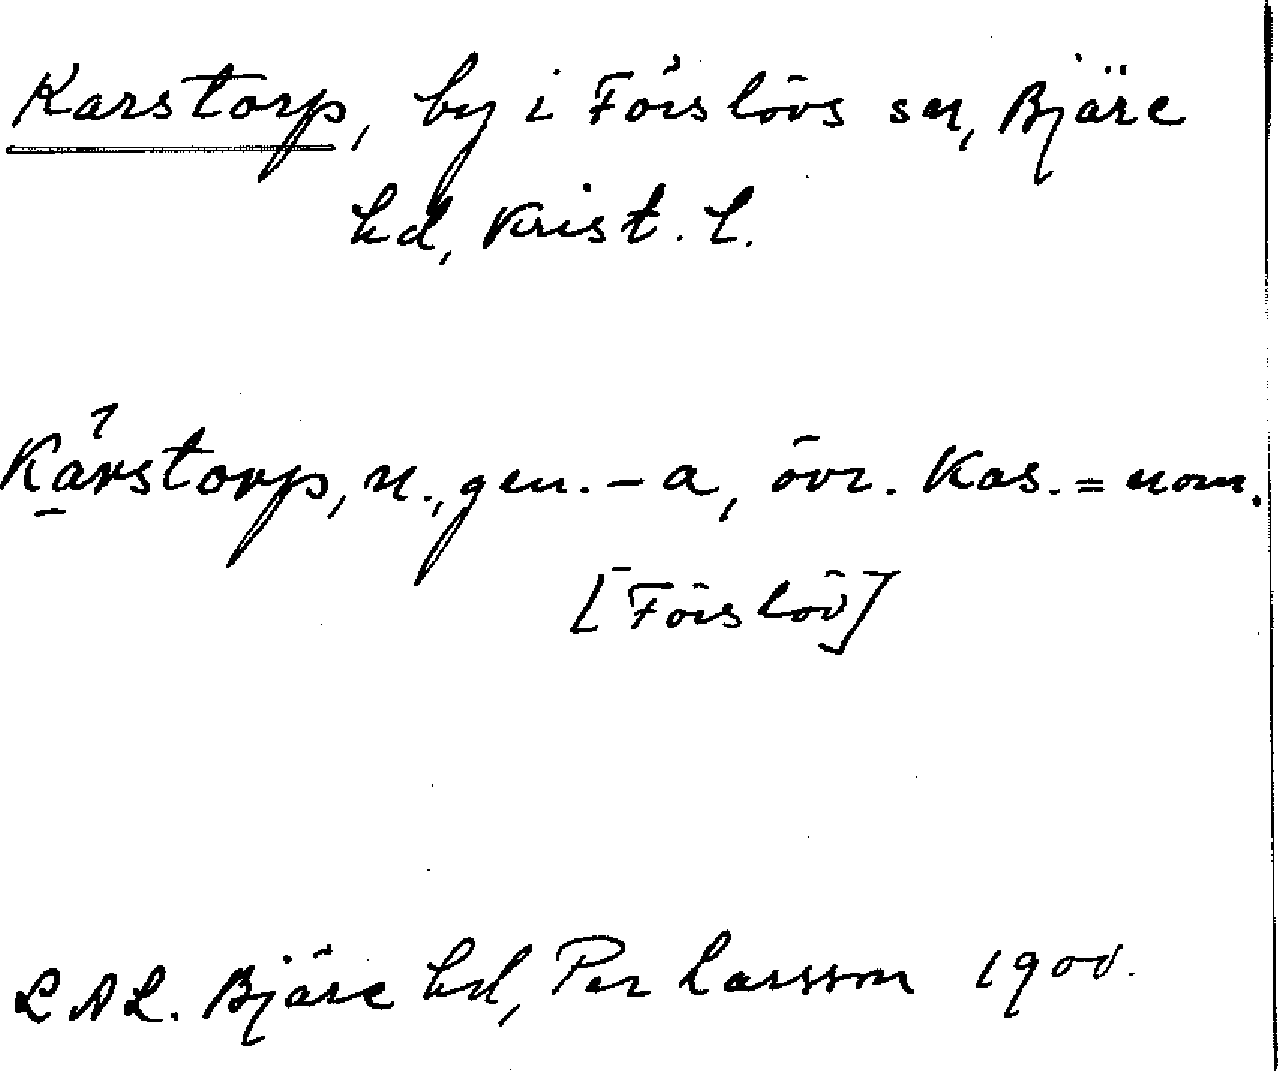 Karstorp, by i Förslövs sn, Bjäre
hd, Krist. l.
Kårstorp, n., gen. – a, övr. Kas. = nom.
[Förslöv]
LAL. Bjäre hd, Per Larsson 1900.